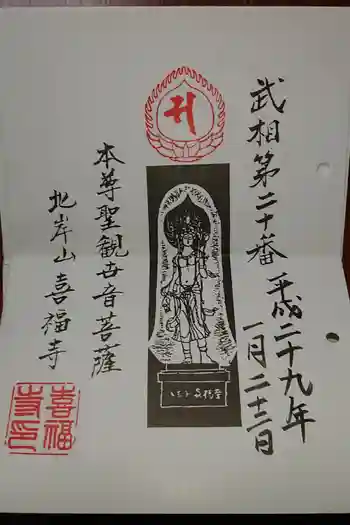 武相第二十番
平成二十九年
一月二十二日
本尊聖観世音菩薩
北岸山喜福寺
喜福
寺印